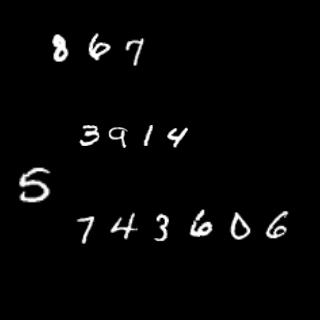 8 6 7
3 9 1 4
5
7 4 3 6 0 6